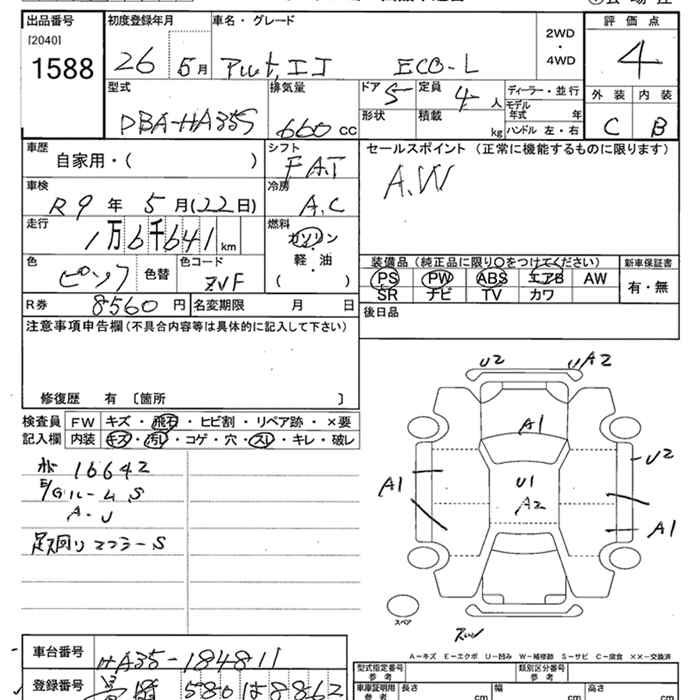 出品番号 初度登録年月 車名・グレード 評価点
[2040] 2WD・4WD
1588 26 5月 アルト,エコ ECO-L 4
型式 排気量 ドア 5 定員 4人 ディーラー・並行 外装 内装
DBA-HA35S 660cc 形状 積載 kg モデル年式 年 C B
ハンドル 左・右
車歴 自家用・( ) シフト FAT セールスポイント (正常に機能するものに限ります)
車検 R9年5月(22日) 冷房 A.C A.W
走行 1万6千641km 燃料 ガソリン
軽・油
( )
色 ピンク 色替 色コード ZVF
装備品 (純正品に限り〇をつけてください) 新車保証書
PS PW ABS エアB AW 有・無
SR ナビ TV カワ
R券 8560円 名変期限 月 日
後日品
注意事項申告欄 (不具合内容等は具体的に記入して下さい)
修復歴 有 〔箇所 〕
検査員 FW キズ・飛石・ヒビ割・リペア跡・×要
記入欄 内装 キズ・汚レ・コゲ・穴・スレ・キレ・破レ
16642
E/GルームS
A-U
足廻りマフラーS
U2 A2
A1
U2
A1 U1
A2
A1
スペア
A－キズ E－エクボ U－凹み W－補修跡 S－サビ C－腐食 ××－交換済
車台番号 HA35-184811
型式指定番号 参考 類別区分番号 参考
登録番号 580 は 8862
車庫証明用 参考 長さ cm 幅 cm 高さ cm